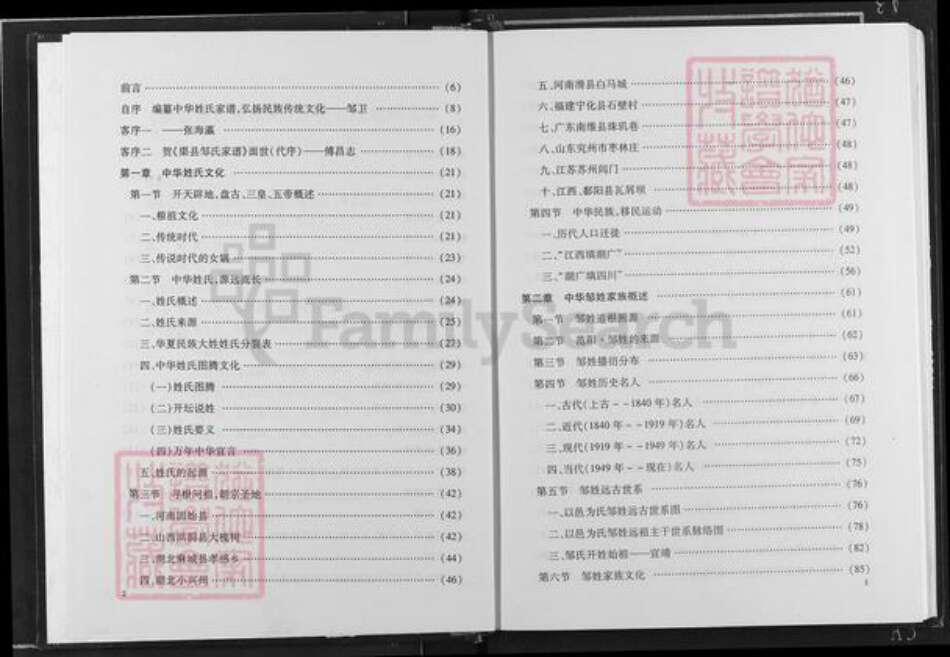 前言 ……………………………… (6)
自序 编纂中华姓氏家谱,弘扬民族传统文化——邹卫 ………… (8)
客序一 ——张海瀛 ……………………………… (16)
客序二 贺《渠县邹氏家谱》面世(代序)——傅昌志 ………… (18)
第一章 中华姓氏文化 ……………………………… (21)
第一节 开天辟地,盘古、三皇、五帝概述 ……………… (21)
一、根祖文化 ……………………………… (21)
二、传统时代 ……………………………… (21)
三、传说时代的女娲 ……………………………… (23)
第二节 中华姓氏,源远流长 ……………………………… (24)
一、姓氏概述 ……………………………… (24)
二、姓氏来源 ……………………………… (25)
三、华夏民族大姓姓氏分裂表 ……………………………… (27)
四、中华姓氏图腾文化 ……………………………… (29)
(一)姓氏图腾 ……………………………… (29)
(二)开坛说姓 ……………………………… (30)
(三)姓氏要义 ……………………………… (34)
(四)万年中华宣言 ……………………………… (36)
五、姓氏的起源 ……………………………… (38)
第三节 寻根问祖,朝宗圣地 ……………………………… (42)
一、河南固始县 ……………………………… (42)
二、山西洪洞县大槐树 ……………………………… (42)
三、湖北麻城县孝感乡 ……………………………… (44)
四、湖北小兴州 ……………………………… (46)
2
五、河南滑县白马城 ……………………………… (46)
六、福建宁化县石壁村 ……………………………… (47)
七、广东南雄县珠玑巷 ……………………………… (47)
八、山东兖州市枣林庄 ……………………………… (48)
九、江苏苏州阊门 ……………………………… (48)
十、江西、鄱阳县瓦屑坝 ……………………………… (48)
第四节 中华民族,移民运动 ……………………………… (49)
一、历代人口迁徙 ……………………………… (49)
二、“江西填湖广” ……………………………… (52)
三、“湖广填四川” ……………………………… (56)
第二章 中华邹姓家族概述 ……………………………… (61)
第一节 邹姓追根溯源 ……………………………… (61)
第二节 范阳·邹姓的来源 ……………………………… (62)
第三节 邹姓播衍分布 ……………………………… (63)
第四节 邹姓历史名人 ……………………………… (66)
一、古代(上古--1840年)名人 ……………………………… (67)
二、近代(1840年--1919年)名人 ……………………………… (69)
三、现代(1919年--1949年)名人 ……………………………… (72)
四、当代(1949年--现在)名人 ……………………………… (75)
第五节 邹姓远古世系 ……………………………… (76)
一、以邑为氏邹姓远古世系图 ……………………………… (76)
二、以邑为氏邹姓远祖主干世系脉络图 ……………………………… (78)
三、邹氏开姓始祖——宣靖 ……………………………… (82)
第六节 邹姓家族文化 ……………………………… (85)
1
FamilySearch